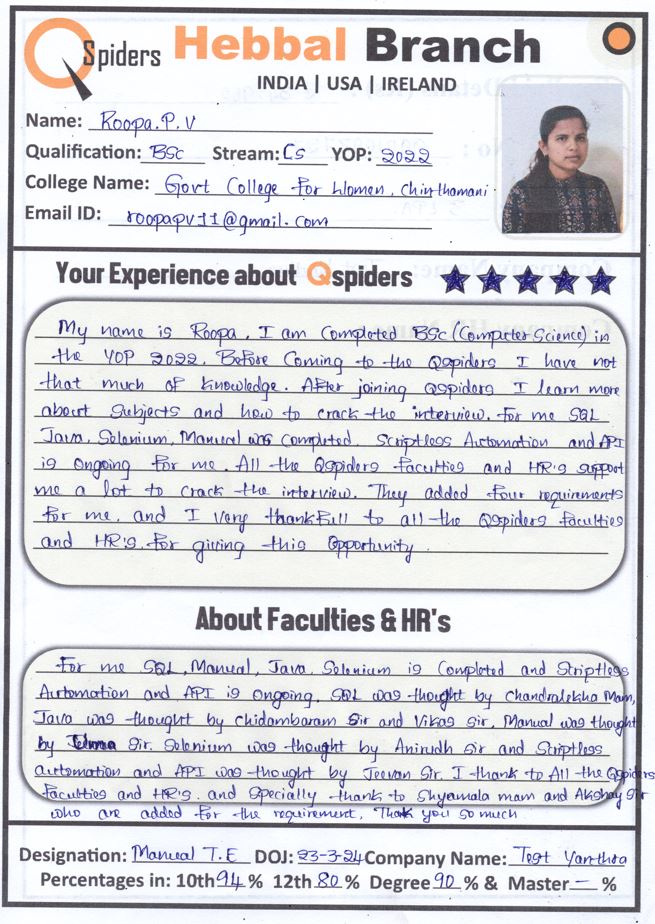 QSpiders Hebbal Branch
INDIA | USA | IRELAND
Name: Roopa.P.V
Qualification: BSc Stream: Cs YOP: 2022
College Name: Govt College for Women, Chinthamani.
Email ID: roopapv11@gmail.com
Your Experience about Qspiders
My name is Roopa, I am completed BSc (Computer Science) in
the YOP 2022. Before Coming to the Qspiders I have not
that much of knowledge. After joining Qspiders I learn more
about Subjects and how to crack the interview. For me SQL
Java, Selenium, Manual was completed. Scriptless Automation and API
is ongoing for me. All the Qspiders faculties and HR's support
me a lot to crack the interview. They added four requirements
for me, and I very thankfull to all the Qspiders faculties
and HR's. for giving this Opportunity.
About Faculties & HR's
For me SQL, Manual, Java, Selenium is Completed and Scriptless
Automation and API is ongoing. SQL was thought by Chandralekha Mam,
Java was thought by Chidambaram Sir and Vikas Sir, Manual was thought
by Sir. Selenium was thought by Anirudh Sir and Scriptless
automation and API was thought by Jeevan Sir. I thank to All the Qspiders
faculties and HR's. and Specially thank to Shyamala mam and Akshay Sir
who are added for the requirement, Thank you so much
Designation: Manual T.E DOJ: 23-3-24 Company Name: Test Yanthra
Percentages in: 10th 94 % 12th 80 % Degree 90 % & Master — %